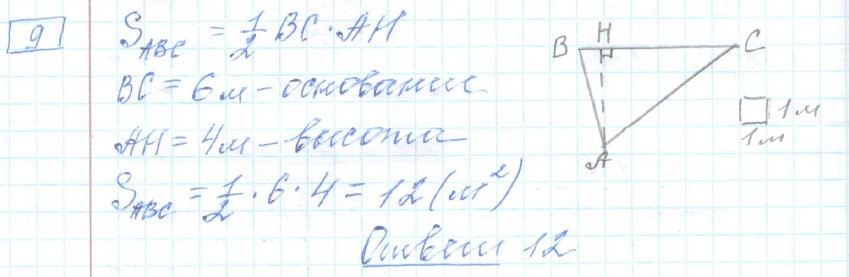 9
S_ABC = 1/2 BC · AH
BC = 6 м – основание
AH = 4 м – высота
S_ABC = 1/2 · 6 · 4 = 12 (м²)
Ответ 12
B H C
A
1 м
1 м